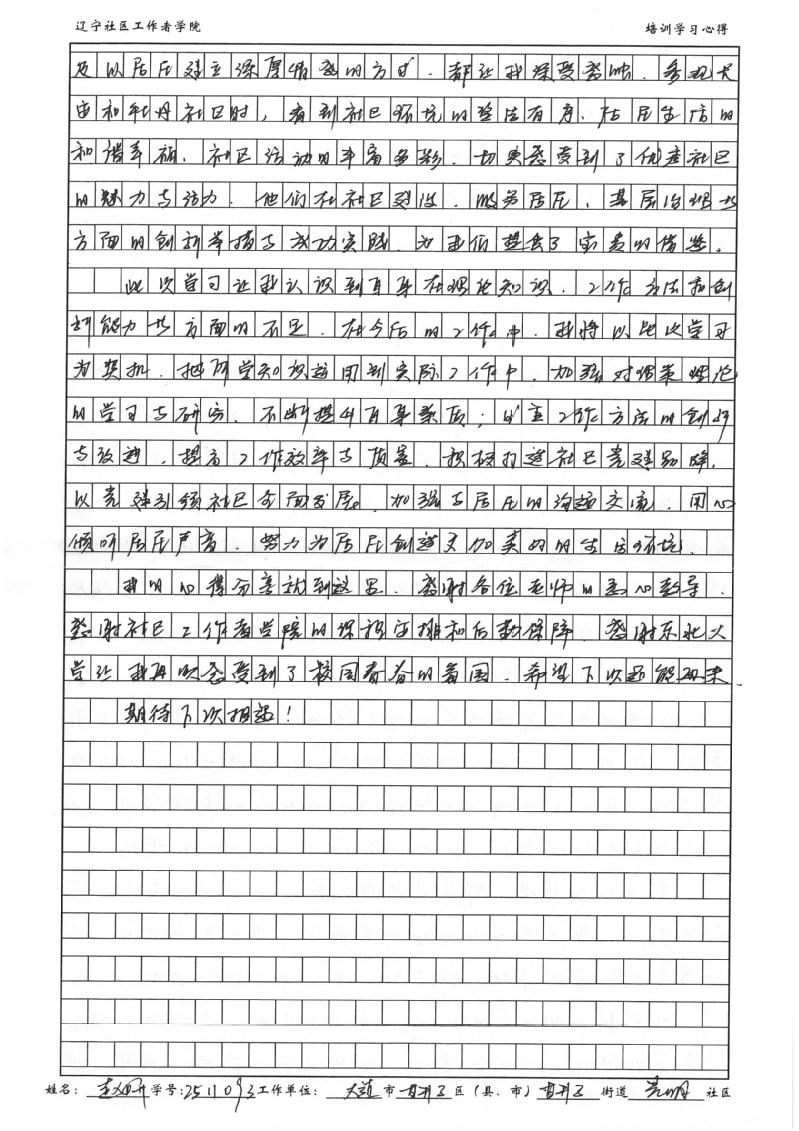 辽宁社区工作者学院 培训学习心得
及以居民建立深厚情感的方式,都让我深受感触。参观长
和牡丹社区时,看到社区环境的整洁有序、社区居生活的
和谐幸福、社区活动的丰富多彩,切实感受到了优秀社区
的魅力与活力。他们在社区建设、服务居民、基层治理等
方面的创新举措与成功实践,为我们提供了宝贵的借鉴。
此次学习让我认识到自身在理论知识、工作方法和创
新能力等方面的不足。在今后的工作中,我将以此次学习
为契机,把所学知识运用到实际工作中,加强对政策理论
的学习与研究,不断提升自身素质;注重工作方法的创新
与改进,提高工作效率与质量,积极打造社区党建品牌,
以党建引领社区全面发展。加强与居民的沟通交流,用心
倾听居民声音,努力为居民创造更加美好的生活环境。
我的心得分享就到这里。感谢各位老师的悉心教导,
感谢社区工作者学院的课程安排和后勤保障,感谢东北大
学让我再次感受到了校园青春的氛围,希望下次还能再来。
期待下次相遇!
姓名: 学号:2511093 工作单位: 大连市 区(县、市) 街道 社区